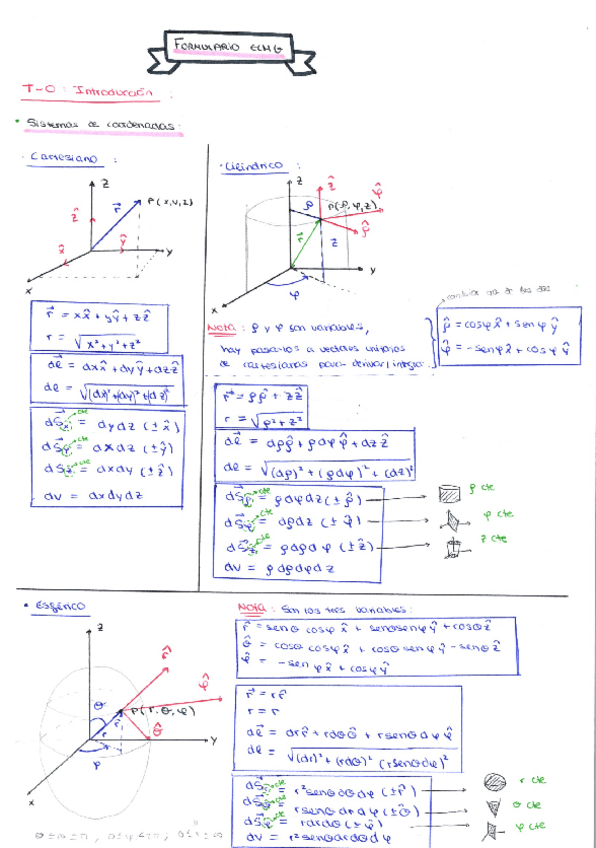 FORMULARIO ELMG
T-0: Introducción:
• Sistemas de coordenadas:
· Cartesiano:
z
P(x,y,z)
r⃗
ẑ
x̂
ŷ
y
x
r⃗ = xx̂ + yŷ + zẑ
r = √(x²+y²+z²)
dl⃗ = dxx̂ + dyŷ + dzẑ
dl = √((dx)²+(dy)²+(dz)²)
dS⃗x=cte = dydz (±x̂)
dS⃗y=cte = dxdz (±ŷ)
dS⃗z=cte = dxdy (±ẑ)
dv = dxdydz
· Cilíndrico:
z
ẑ
φ̂
ρ
P(ρ,φ,z)
ρ̂
r⃗
z
y
φ
x
Nota: ρ̂ y φ̂ son variables,
hay pasarlos a vectores unitarios
de cartesianas para derivar/integrar.
ρ̂ = cosφx̂ + senφŷ
φ̂ = -senφx̂ + cosφŷ
r⃗ = ρρ̂ + zẑ
r = √(ρ²+z²)
dl⃗ = dρρ̂ + ρdφφ̂ + dzẑ
dl = √((dρ)² + (ρdφ)² + (dz)²)
dS⃗ρ=cte = ρdφdz (±ρ̂)
ρ cte
dS⃗φ=cte = dρdz (±φ̂)
φ cte
dS⃗z=cte = ρdρdφ (±ẑ)
z cte
dv = ρdρdφdz
• Esférico
z
r̂
φ̂
θ
P(r,θ,φ)
r⃗
r
θ̂
y
φ
x
Nota: Son los tres variables:
r̂ = senθcosφx̂ + senθsenφŷ + cosθẑ
θ̂ = cosθcosφx̂ + cosθsenφŷ - senθẑ
φ̂ = -senφx̂ + cosφŷ
r⃗ = rr̂
r = r
dl⃗ = drr̂ + rdθθ̂ + rsenθdφφ̂
dl = √((dr)² + (rdθ)² (rsenθdφ)²)
dS⃗r=cte = r²senθdθdφ (±r̂)
r cte
dS⃗θ=cte = rsenθdrdφ (±θ̂)
θ cte
dS⃗φ=cte = rdrdθ (±φ̂)
φ cte
dv = r²senθdrdθdφ